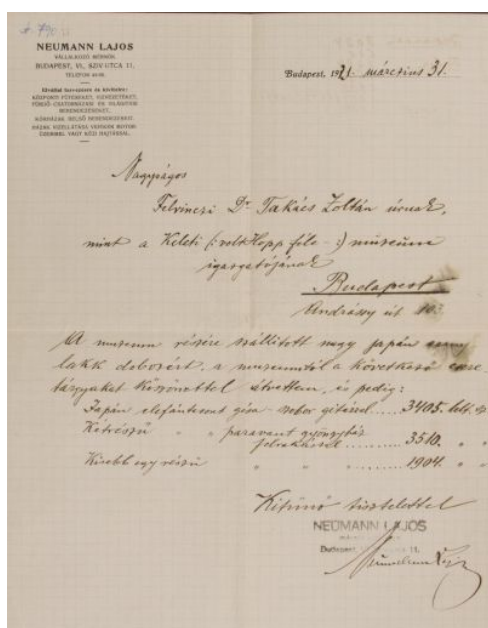 NEUMANN LAJOS
VÁLLALKOZÓ MÉRNÖK.
BUDAPEST, VI., SZIV UTCA 11.
TELEFON
Elvállal tervezésre és kivitelre:
KÖZPONTI FŰTÉSEKET, VIZVEZETÉKET,
FÜRDŐ-CSATORNÁZÁSI ÉS VILÁGITÁSI
BERENDEZÉSEKET,
KÓRHÁZAK BELSŐ BERENDEZÉSEIT.
HÁZAK VIZELLÁTÁSA VIZNYOMÓ MOTOR-
ÜZEMMEL VAGY KÉZI HAJTÁSSAL.
Budapest, 1921. március 31.
Nagyságos
Felvinczi Dr Takács Zoltán úrnak,
mint a Keleti (: volt Hopp féle - :) múzeum
igazgatójának
Budapest
Andrássy út 103.
A museum részére szállított nagy japán arany
lakk dobozért, a museumtól a következő csere
tárgyakat köszönettel átvettem, és pedig:
Japán elefántcsont szobor gitárral .... 3405. lelt.
Kétrészű " " paravant gyöngyház
felrakással ......... 3510. " "
Kisebb egy részű " " " ......... 1904. " "
Kitünő tisztelettel
NEUMANN LAJOS
Budapest, 11.
Neumann Lajos